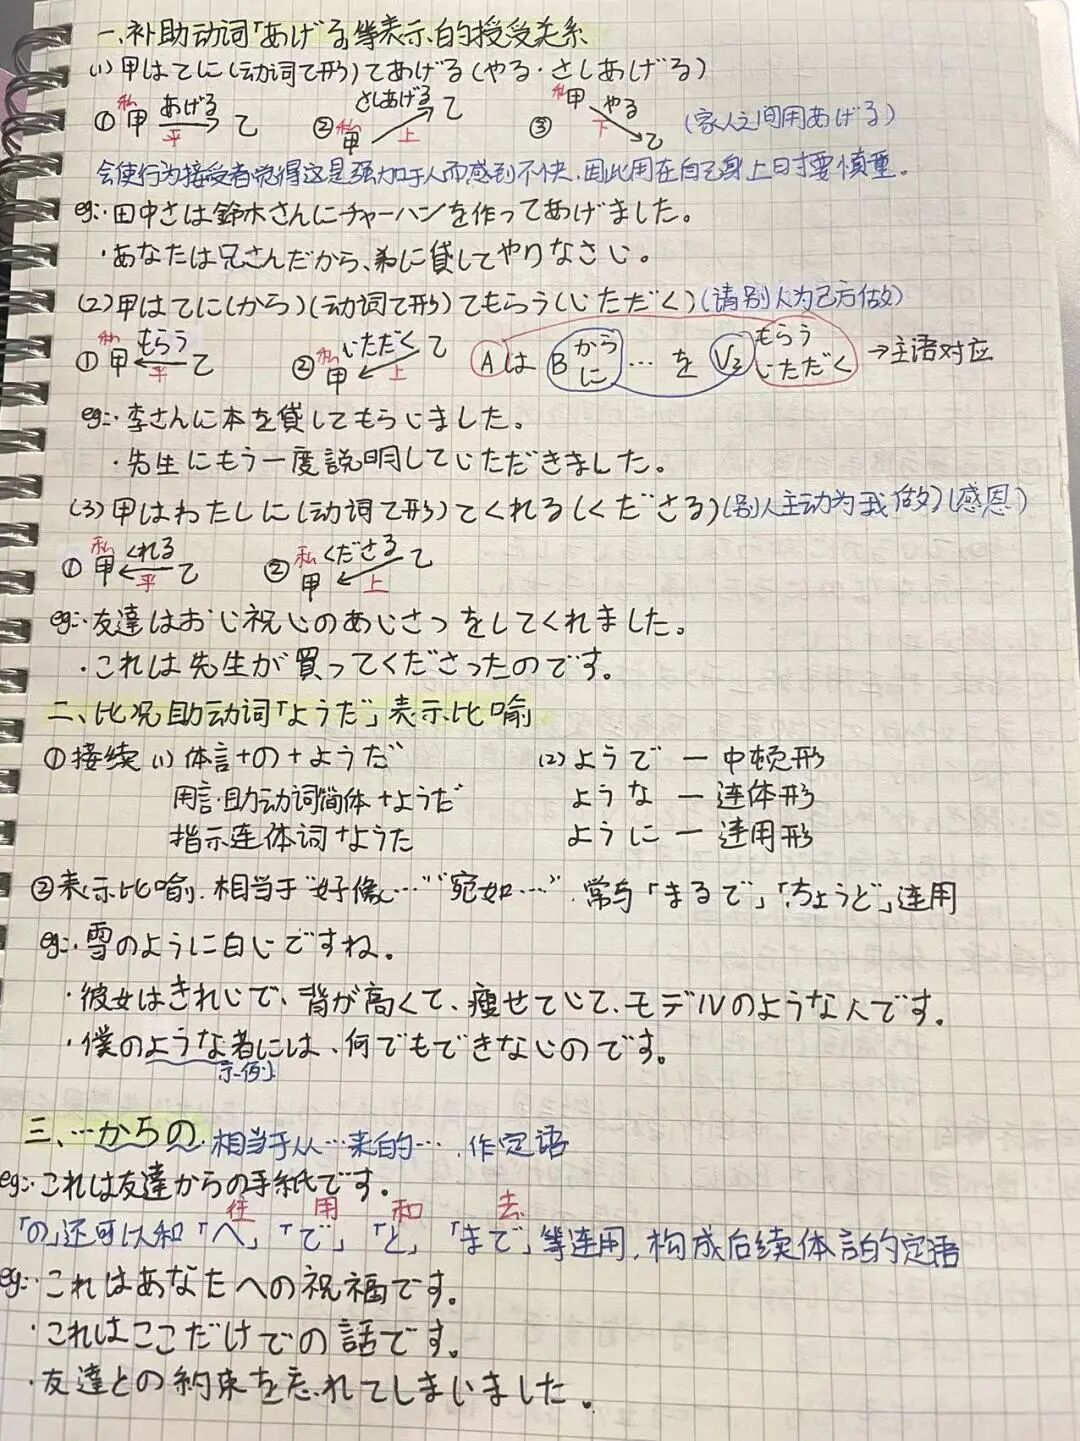 一、补助动词「あげる」等表示的授受关系
(1) 甲は乙に(动词て形)てあげる(やる・さしあげる)
① 私 甲 あげる 平 乙 ② 私 甲 さしあげる 上 乙 ③ 私 甲 やる 下 乙 (家人之间用あげる)
会使行为接受者觉得这是强加于人而感到不快,因此用在自己身上时要慎重。
eg:・田中さは鈴木さんにチャーハンを作ってあげました。
・あなたは兄さんだから、弟に貸してやりなさい。
(2) 甲は乙に(から)(动词て形)てもらう(いただく)(请别人为己方做)
① 私 甲 もらう 平 乙 ② 私 甲 いただく 上 乙 Aは B から に … を V2 もらう いただく →主语对应
eg:・李さんに本を貸してもらいました。
・先生にもう一度説明していただきました。
(3) 甲はわたしに(动词て形)てくれる(くださる)(别人主动为我做)(感恩)
① 私 甲 くれる 平 乙 ② 私 甲 くださる 上 乙
eg:・友達はお祝いのあいさつをしてくれました。
・これは先生が買ってくださったのです。
二、比况助动词「ようだ」表示比喻
①接续 (1) 体言+の+ようだ (2) ようで — 中顿形
用言・助动词简体+ようだ ような — 连体形
指示连体词+ようた ように — 连用形
②表示比喻.相当于“好像…”“宛如…”.常与「まるで」「ちょうど」连用
eg:・雪のように白いですね。
・彼女はきれいで、背が高くて、瘦せていて、モデルのような人です。
・僕のような者には、何でもできないのです。
示例
三、…からの.相当于从…来的….作定语
eg:・これは友達からの手紙です。
往 用 和 去
「の」还可以和「へ」「で」「と」「まで」等连用,构成后续体言的定语
eg:・これはあなたへの祝福です。
・これはここだけでの話です。
・友達との約束を忘れてしまいました。